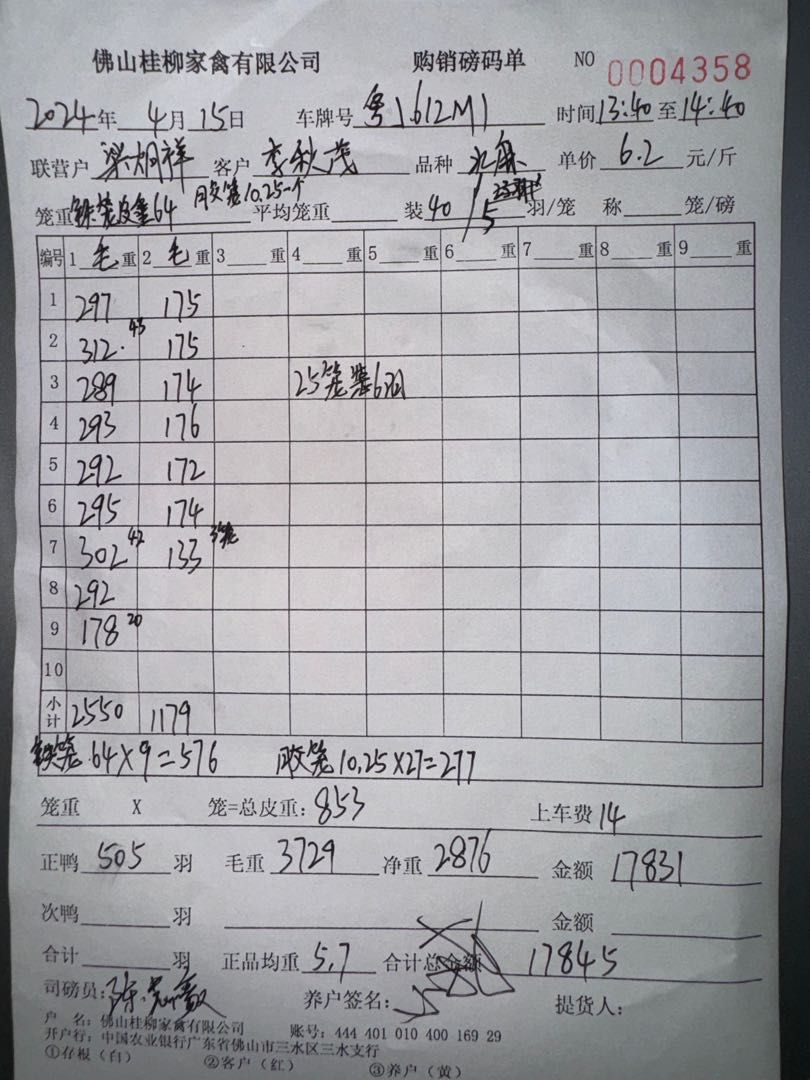 佛山桂柳家禽有限公司 购销磅码单 NO 0004358
2024年 4月 15日 车牌号 粤J612M1 时间 13:40 至 14:40
联营户 梁炯祥 客户 李秋茂 品种 水麻 单价 6.2 元/斤
笼重 铁笼皮重64 胶笼10.25一个 平均笼重 装 40/5 羽/笼 称 笼/磅
编号 1 毛 重 2 毛 重 3 重 4 重 5 重 6 重 7 重 8 重 9 重
1 297 175
2 312.43 175
3 289 174 25笼装6羽
4 293 176
5 292 172
6 295 174
7 302 42 133 3笼
8 292
9 178 20
10
小计 2550 1179
铁笼 64X9=576 胶笼10.25X27=277
笼重 X 笼=总皮重: 853 上车费 14
正鸭 505 羽 毛重 3729 净重 2876 金额 17831
次鸭 羽 金额
合计 羽 正品均重 5.7 合计总金额 17845
司磅员: 养户签名: 提货人:
户 名: 佛山桂柳家禽有限公司 账号: 444 401 010 400 169 29
开户行: 中国农业银行广东省佛山市三水区三水支行
①存根(白) ②客户(红) ③养户(黄)